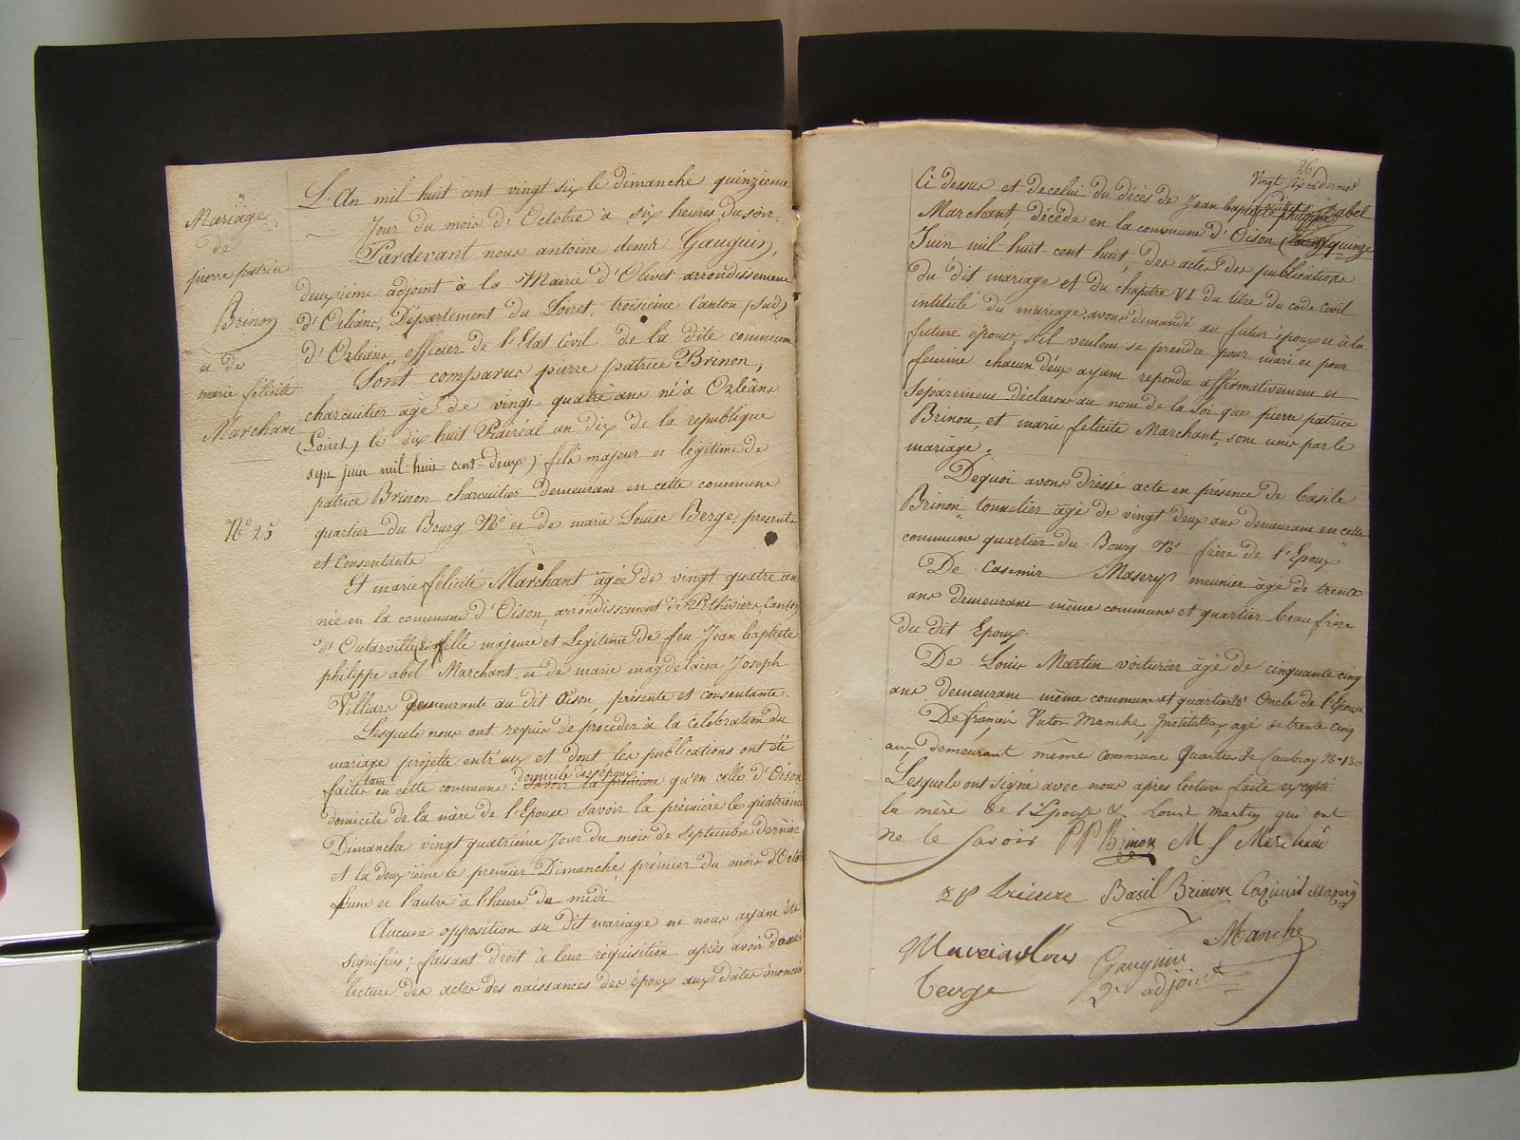 Mariage
de
pierre patrice
Brinon
et de
marie félicité
Marchant
N° 25
L'An mil huit cent vingt six le dimanche quinzieme
Jour du mois d'Octobre à six heures du soir.
Pardevant nous antoine denis Gauguin,
deuxième adjoint à la Mairie d'Olivet arrondissement
d'Orléans, Département du Loiret, troisième Canton (sud)
d'Orléans, officier de l'Etat Civil de la dite commune
Sont comparus pierre patrice Brinon,
charcuitier âgé de vingt quatre ans né à Orléans
(Loiret) le dix huit Prairéal an dix de la republique
sept juin mil huit cent deux) fils majeur et legitime de
patrice Brinon charcuitier demeurant en cette commune
quartier du Bourg N° et de marie Louise Berge, presents
et consentants
Et marie félicité Marchant âgée de vingt quatre ans
née en la commune d'Oison, arrondissement de Pithiviers, Canton
d'Outarville fille majeure et Legitime de feu Jean baptiste
philippe abel Marchant et de marie magdelaine Joseph
Villiars demeurante au dit Oison, présente et consentante.
Lesquels nous ont requis de procéder à la célébration du
mariage projetté entr'eux et dont les publications ont été
faites tant en cette commune domicile des époux qu'en celle d'Oison
domicile de la mère de l'Epouse savoir la première le quatrième
Dimanche vingt quatrième Jour du mois de Septembre dernier
et la deuxième le premier Dimanche, premier du mois d'Octobre
l'une et l'autre à l'heure de midi
Aucune opposition au dit mariage ne nous ayant été
signifiée; faisant droit à leur réquisition après avoir donné
lecture des actes des naissances des époux aux dates énoncées
26
Vingt six
Ci dessus et de celui du décès de Jean baptiste philippe abel
Marchant, décédé en la commune d'Oison quinze
Juin mil huit cent huit, des actes des publications
du dit mariage et du chapitre VI du titre du code civil
intitulé du mariage, avons demandé au futur époux et à la
future épouse, s'il veulent se prendre pour mari et pour
femme chacun d'eux ayant repondu affirmativement et
Séparement déclarons au nom de la loi que pierre patrice
Brinon, et marie félicité Marchant, sont unis par le
mariage.
De quoi avons dressé acte en présence de basile
Brinon tonnelier âgé de vingt deux ans demeurant en cette
commune quartier du Bourg N° frère de l'Epoux
De Casimir Masery meunier âgé de trente
ans demeurant même commune et quartier beau frère
du dit Epoux.
De Louis Martin voiturier âgé de cinquante cinq
ans demeurant même commune et quartier N° Oncle de l'Epoux
De françois Victor Manche, Instituteur agé de trente cinq
ans demeurant même commune Quartier
Lesquels ont signé avec nous après lecture faite excepté
la mère de l'Epouse & Louis martin qui ont
ne le savoir PP Brinon M f Marchant
Basil Brinon Casimir Masery
Manche
Gauguin
Berge 2e adjoint